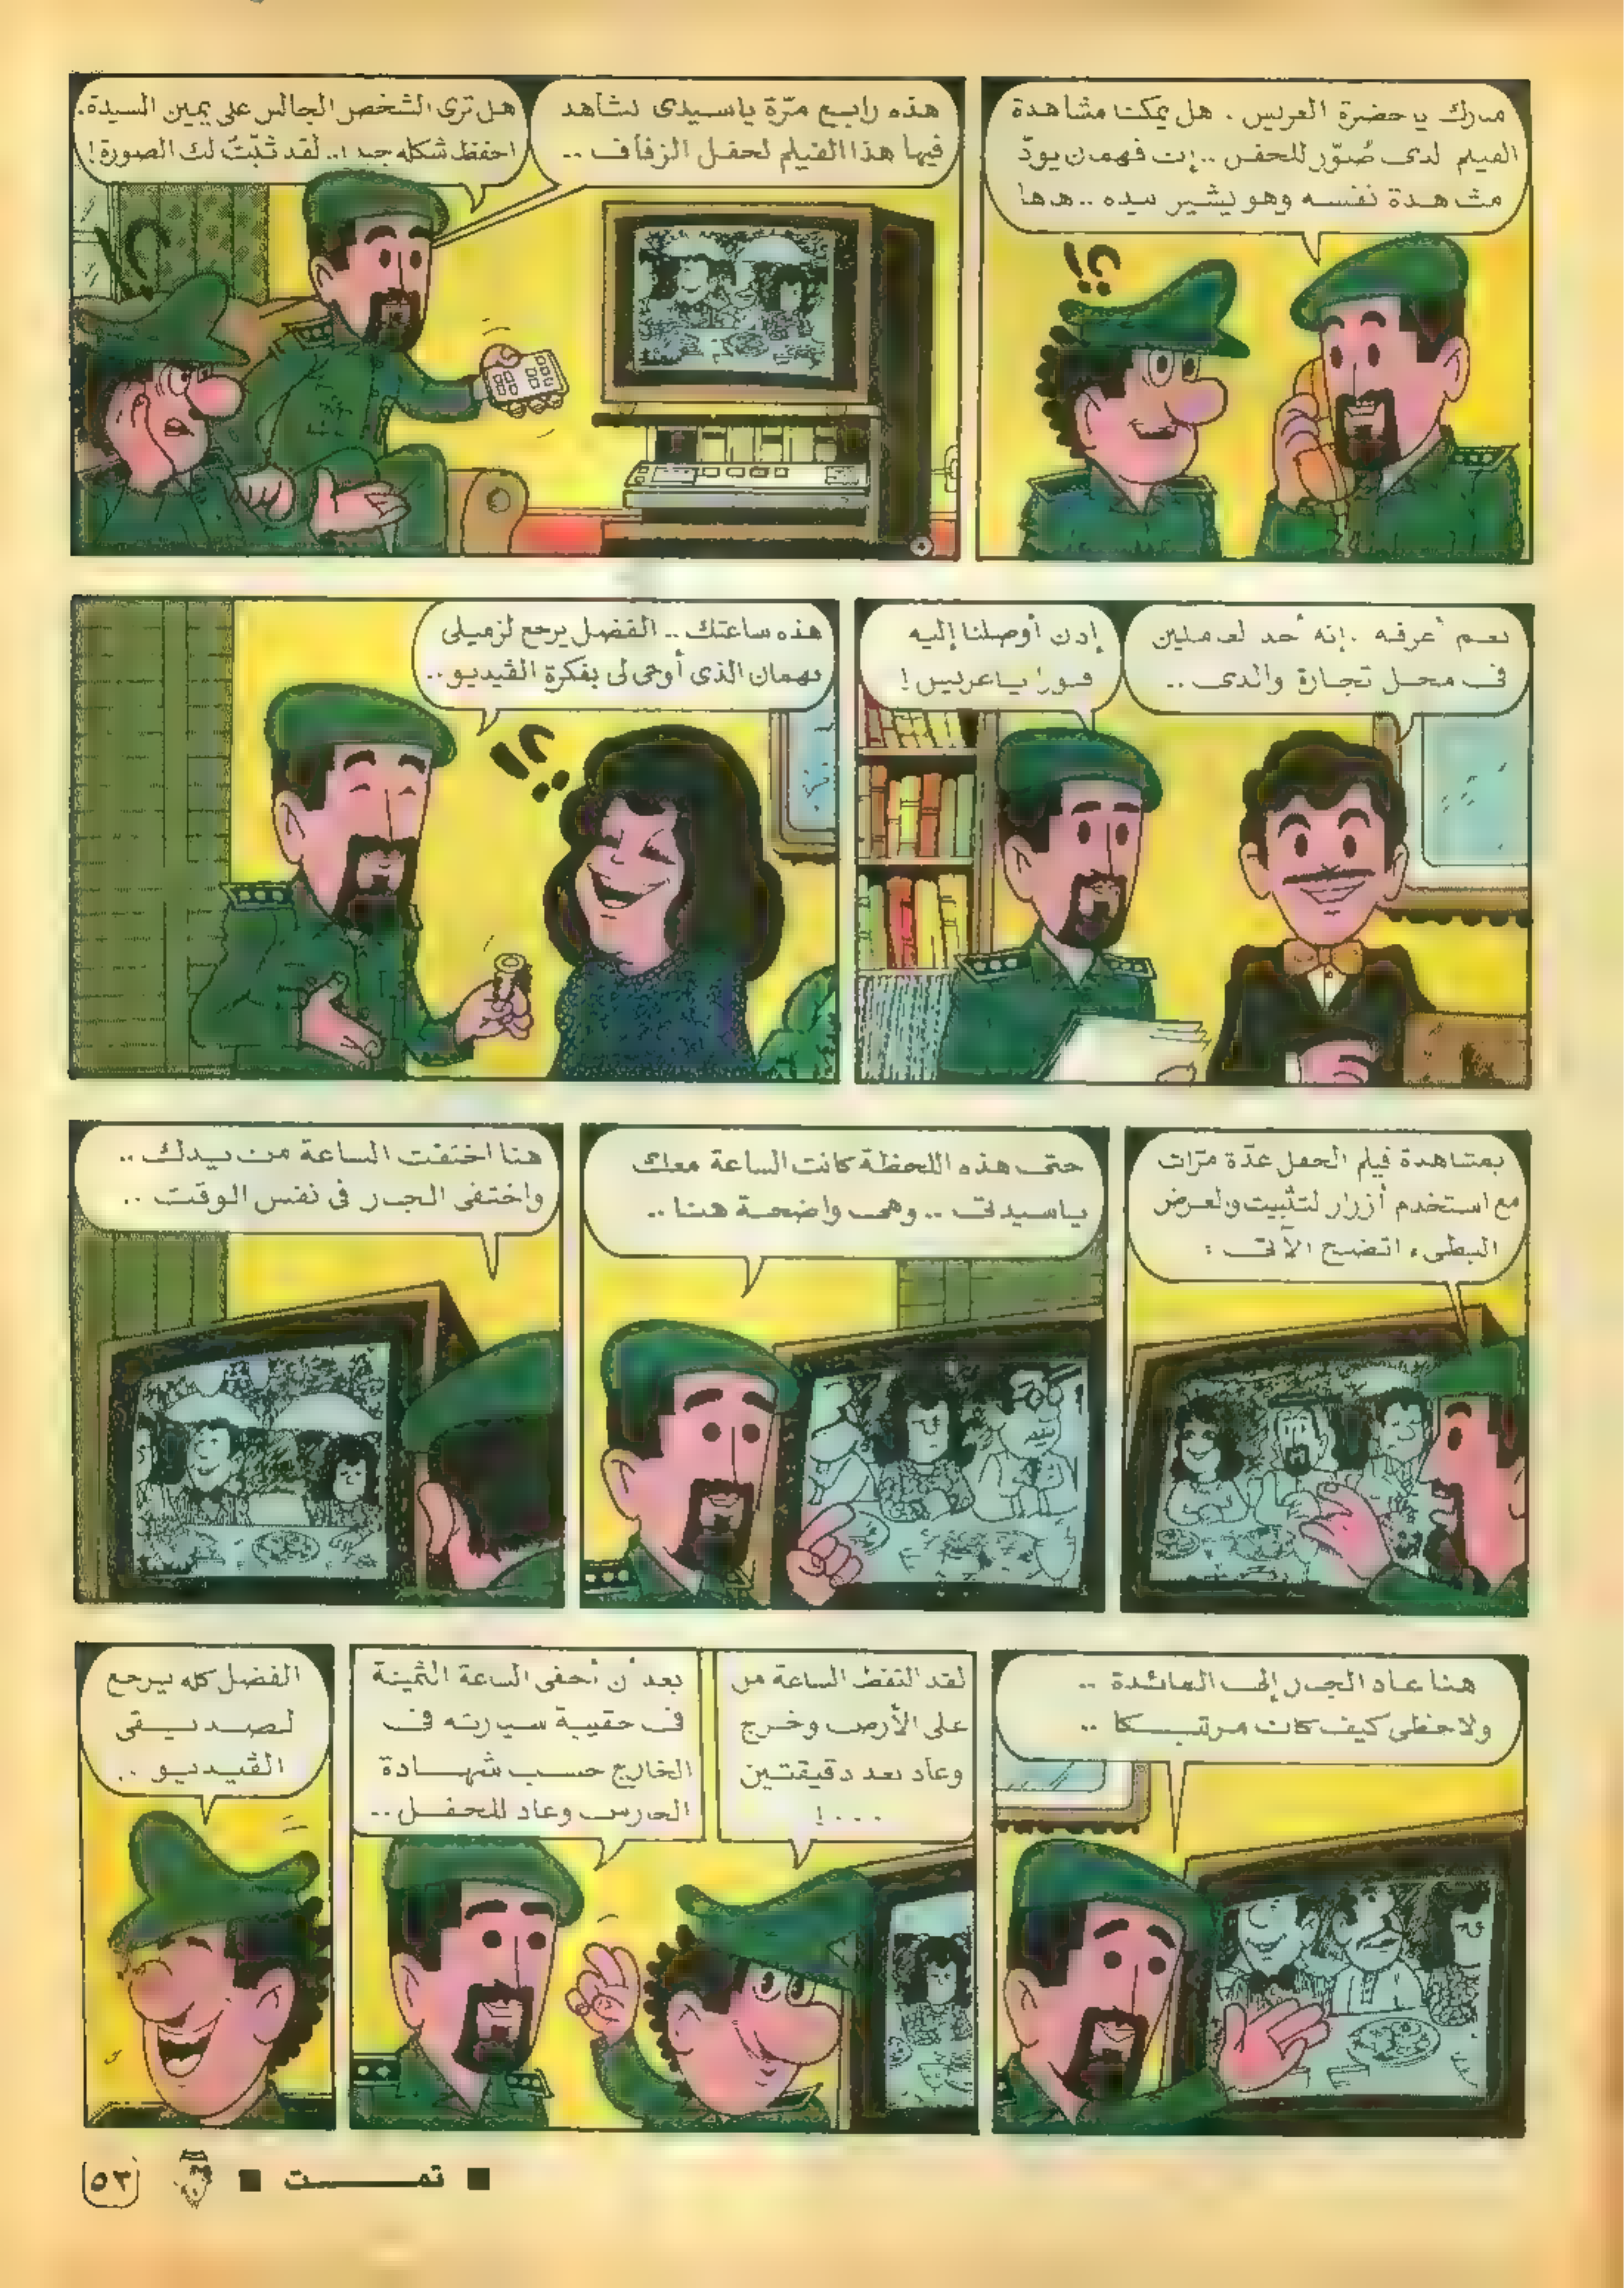 مبروك يا حضرة العريس . هل يمكننا مشاهدة
الفيلم الذى صُوّر للحفل .. إن فهمان يودّ
مشاهدة نفسه وهو يشير بيده .. هاها
!؟
هذه رابع مرّة ياسيدى نشاهد
فيها هذا الفيلم لحفل الزفاف ..
هل ترى الشخص الجالس على يمين السيدة.
احفظ شكله جيدا .. لقد ثبّتّ لك الصورة!
؟!
نعم أعرفه . إنه أحد العاملين
فى محل تجارة والدى ..
إذن أوصلنا إليه
فورا ياعريس !
هذه ساعتك .. الفضل يرجع لزميلى
فهمان الذى أوحى لى بفكرة الڤيديو ..
!؟
بمشاهدة فيلم الحفل عدّة مرّات
مع استخدام أزرار التثبيت والعرض
البطىء اتضح الآتى :
حتى هذه اللحظة كانت الساعة معك
ياسيدتى .. وهى واضحة هنا ..
هنا اختفت الساعة من يدك ..
واختفى الجار فى نفس الوقت ..
هنا عاد الجار إلى المائدة ..
ولاحظى كيف كان مرتبكا ..
لقد التقط الساعة من
على الأرض وخرج
وعاد بعد دقيقتين
...!
بعد أن أخفى الساعة الثمينة
فى حقيبة سيارته فى
الخارج حسب شهادة
الحارس وعاد للحفل ..
الفضل كله يرجع
لصديقى
الڤيديو ..
■ تمـــت ■
٥٣